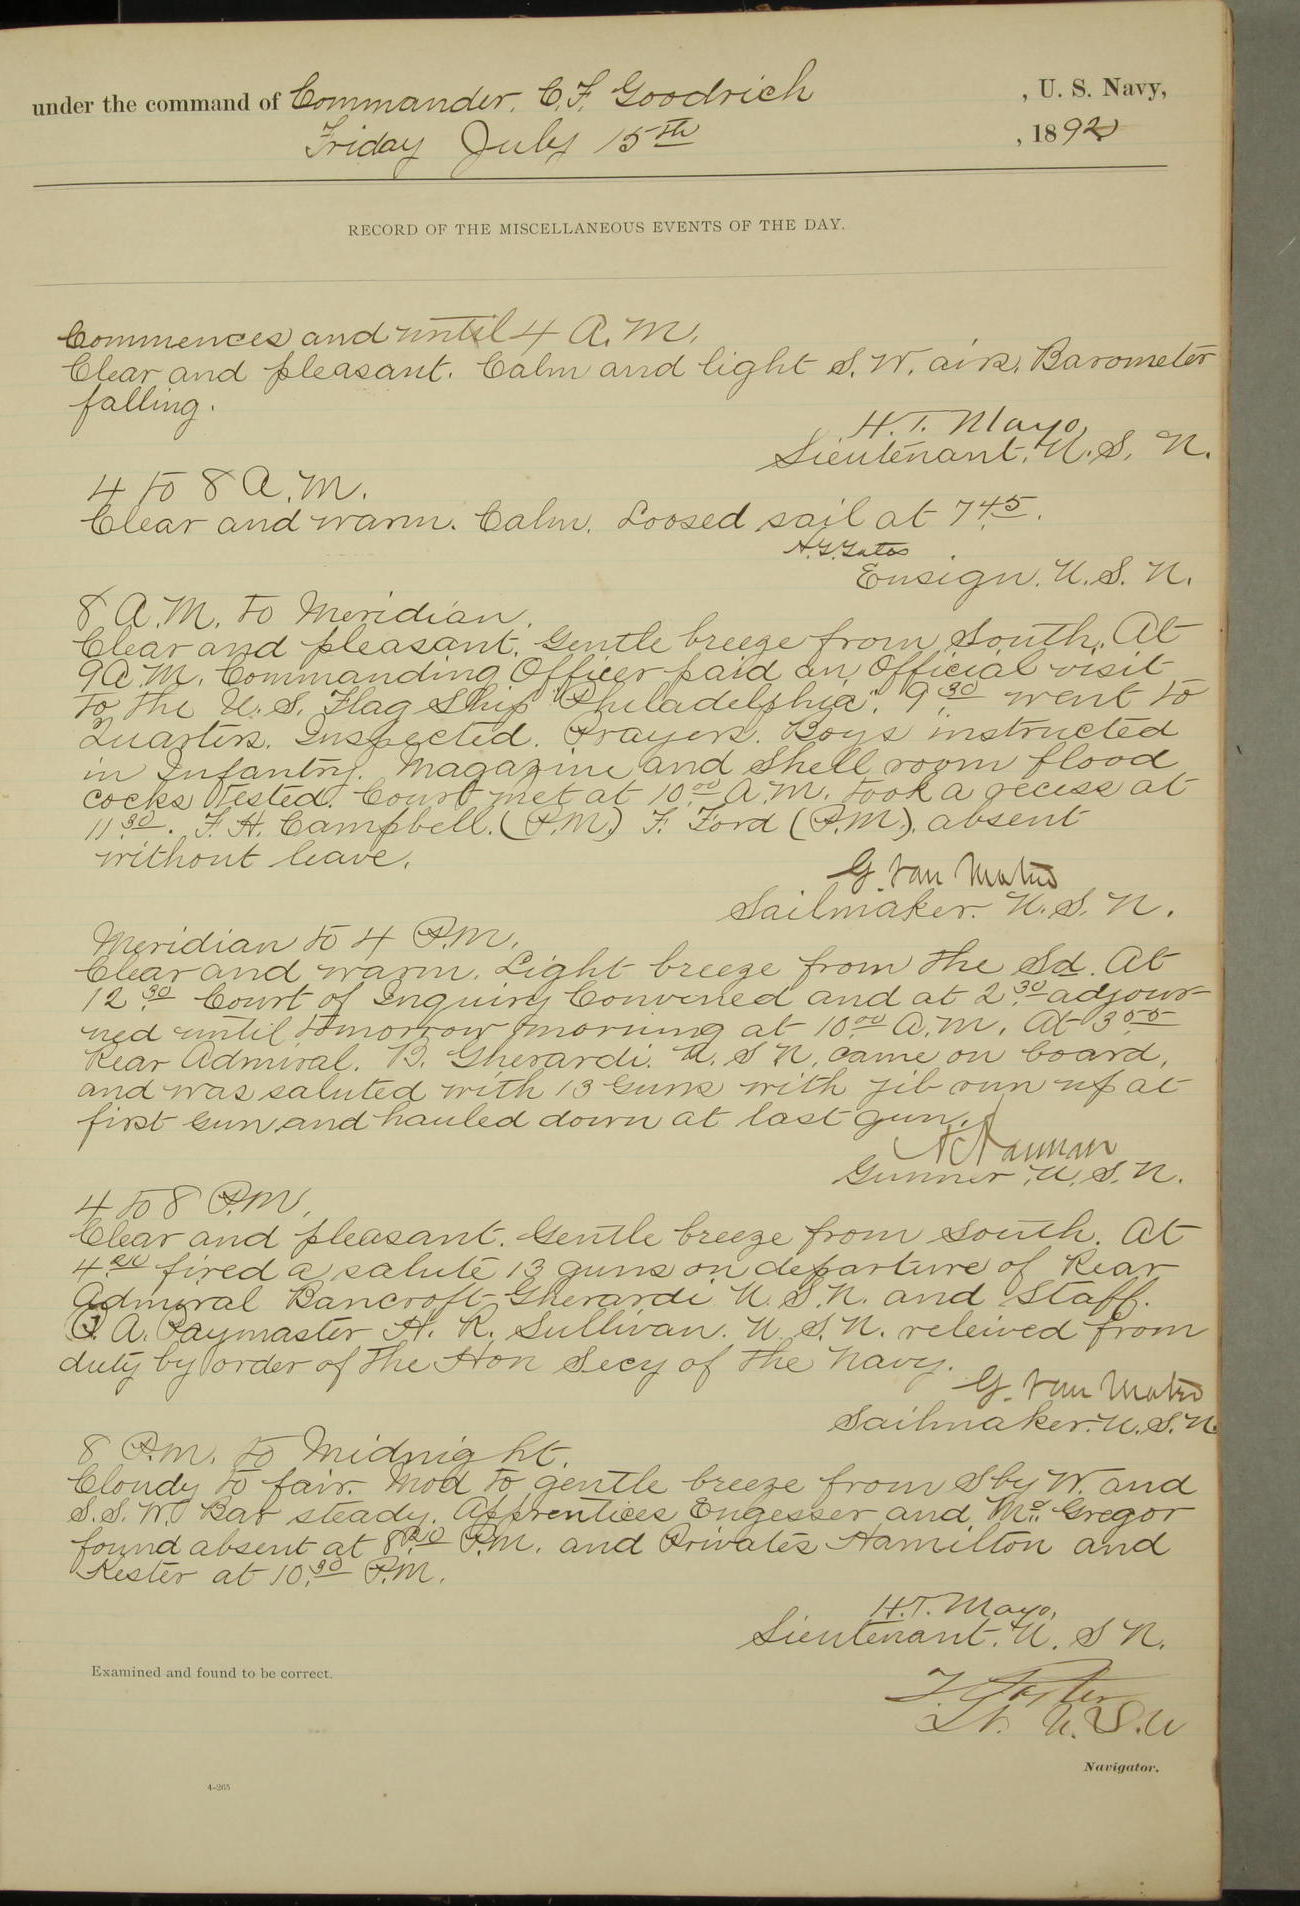 under the command of Commander. C. F. Goodrich , U. S. Navy,
Friday July 15th , 1892
RECORD OF THE MISCELLANEOUS EVENTS OF THE DAY.
Commences and until 4 A.M.
Clear and pleasant. Calm and light S. W. airs. Barometer
falling.
H. T. Mayo
Lieutenant. U. S. N.
4 to 8 A.M.
Clear and warm. Calm. Loosed sail at 7.45.
H. G. Gates
Ensign. U. S. N.
8 A.M. to Meridian.
Clear and pleasant. Gentle breeze from South. At
9 A.M. Commanding Officer paid an Official visit
to the U. S. Flag Ship "Philadelphia". 9.30 went to
Quarters. Inspected. Prayers. Boys instructed
in Infantry. Magazine and Shell room flood
cocks tested. Court met at 10.00 A.M. took a recess at
11.30. F. H. Campbell. (P.M.) F. Ford (P.M.). absent
without leave.
G. Van Mater
Sailmaker. U. S. N.
Meridian to 4 P.M.
Clear and warm. Light breeze from the Sd. At
12.30 Court of Inquiry Convened and at 2.30 adjour-
ned until tomorrow morning at 10.00 A.M. At 3.55
Rear Admiral. B. Gherardi. U. S N. came on board,
and was saluted with 13 Guns with jib run up at
first Gun and hauled down at last gun.
Gunner. U. S. N.
4 to 8 P.M.
Clear and pleasant. Gentle breeze from South. At
4 fired a salute 13 guns on departure of Rear
Admiral Bancroft Gherardi U. S. N. and Staff.
P. A. Paymaster H. R. Sullivan. U. S. N. releived from
duty by order of the Hon Secy of the Navy.
G. Van Mater
Sailmaker. U. S. N.
8 P.M. to Midnight.
Cloudy to fair. Mod to gentle breeze from S by W. and
S. S. W. Bar steady. Apprentices Engesser and Mc Gregor
found absent at 8 P.M. and Privates Hamilton and
Kester at 10.30 P.M.
H. T. Mayo.
Lieutenant. U. S N.
Examined and found to be correct.
Lt. U. S. N
Navigator.
4-265